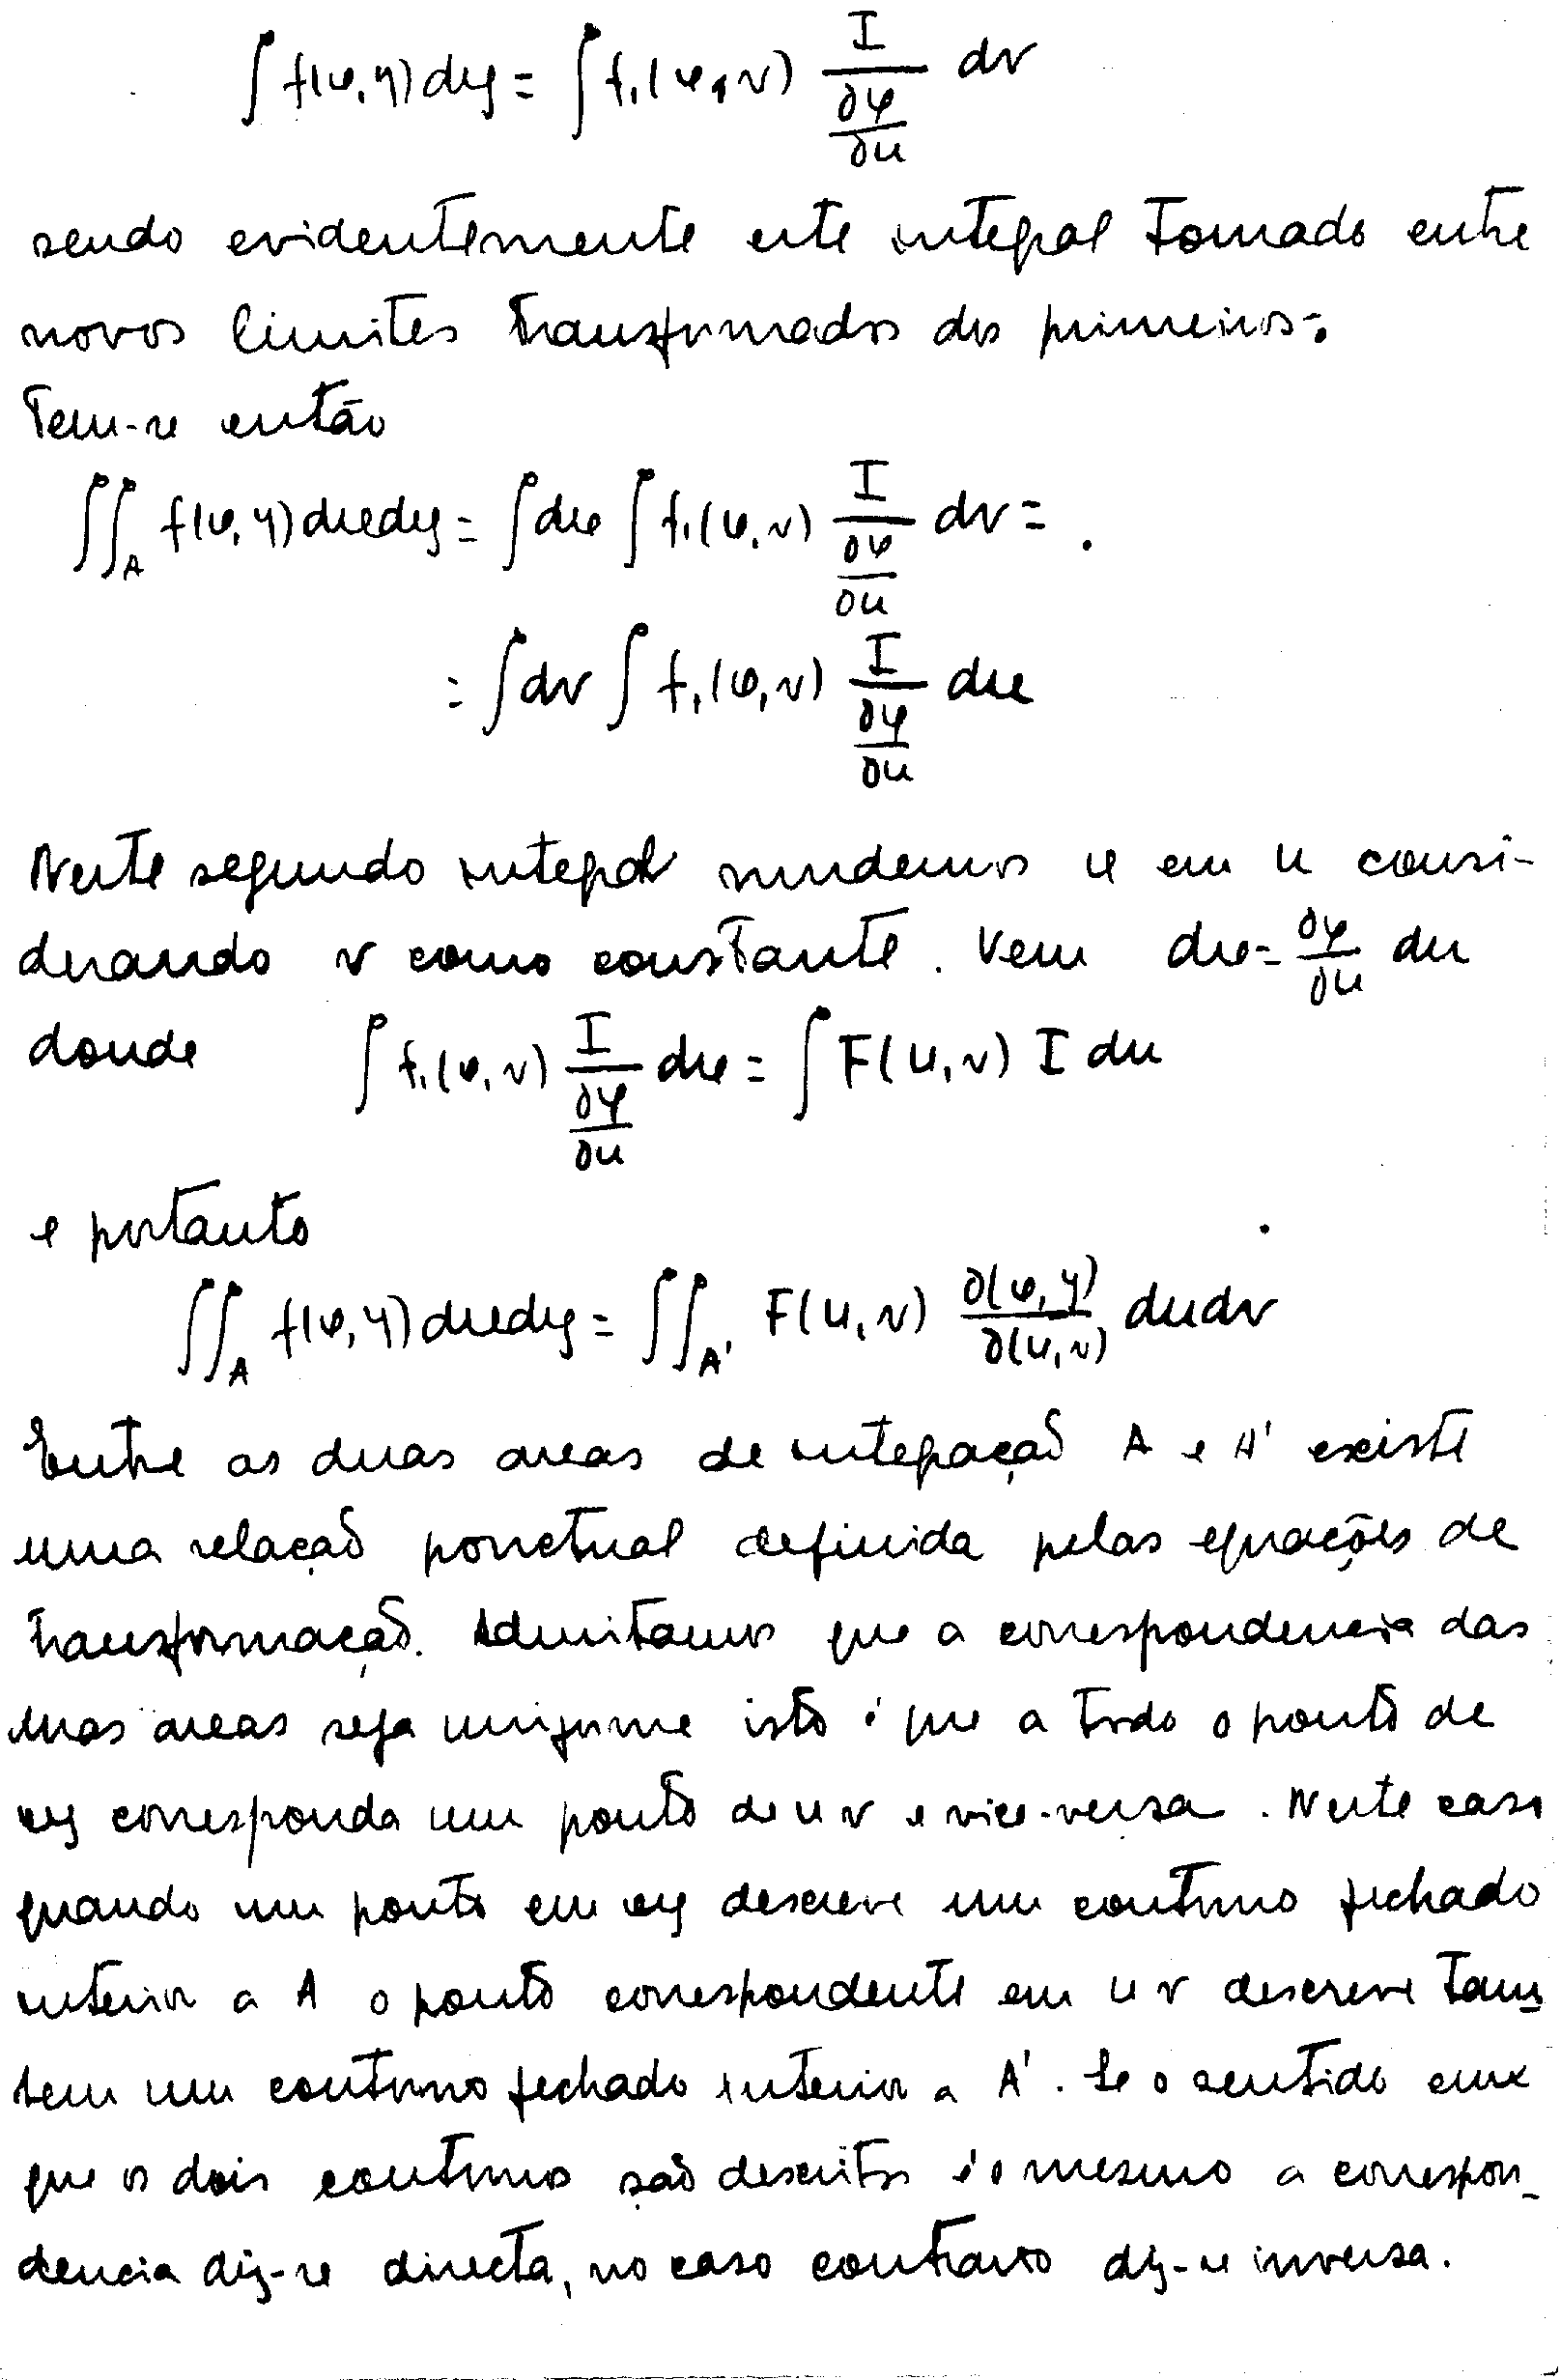 ∫ f(x,y) dy = ∫ f₁(x,v) I/(∂φ/∂u) dv
sendo evidentemente este integral tomado entre
novos limites transformados dos primeiros.
Tem-se então
∬_A f(x,y) dx dy = ∫ dx ∫ f₁(x,v) I/(∂φ/∂u) dv =
= ∫ dv ∫ f₁(x,v) I/(∂φ/∂u) dx
Neste segundo integral mudemos x em u consi-
derando v como constante. Vem dx = ∂φ/∂u du
donde ∫ f₁(x,v) I/(∂φ/∂u) dx = ∫ F(u,v) I du
e portanto
∬_A f(x,y) dx dy = ∬_A' F(u,v) ∂(x,y)/∂(u,v) du dv
Entre as duas areas de integração A e A' existe
uma relação ponctual definida pelas equações de
transformação. Admitamos que a correspondencia das
duas areas seja uniforme isto é que a todo o ponto de
xy corresponda um ponto de u v e vice-versa. Neste caso
quando um ponto em xy descreve um contorno fechado
interior a A o ponto correspondente em u v descreve tam
bem um contorno fechado interior a A'. Se o sentido em
que os dois contornos são descritos é o mesmo a correspon-
dencia diz-se directa, no caso contrario diz-se inversa.